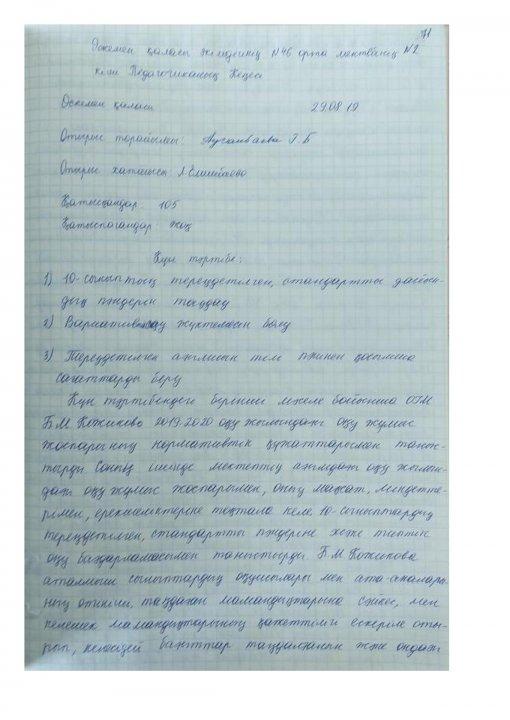 71
Өскемен қаласы әкімдігінің №46 орта мектебінің №2
кеші Педагогикалық Кеңесі
Өскемен қаласы 29.08.19
Отырыс төрайымы: Г.Б
Отырыс хатшысы: А
Қатысқандар: 105
Қатыспағандар: жоқ
Күн тәртібі:
1) 10-сыныптың тереңдетілген, стандартты дайын-
дық пәндерін таңдау
2) Вариативтік оқу жүктемесін бөлу
3) Тереңдетілген ағылшын тілі пәнінен қосымша
сағаттарды беру
Күн тәртібіндегі бірінші мәселе бойынша ОІМ
Б.М Кожикова 2019-2020 оқу жылындағы оқу жұмыс
жоспарының нормативтік құжаттарымен таныс-
тырды. Соның ішінде мектептің ағымдағы оқу жылын-
дағы оқу жұмыс жоспарымен, оның мақсат, міндетте-
рімен, ерекшеліктеріне тоқтала келе 10-сыныптардың
тереңдетілген, стандартты пәндеріне және типтік
оқу бағдарламасымен таныстырды Б.М Кожикова
аталмыш сыныптардың оқушылары мен ата-аналары-
ның өтініші, таңдаған мамандықтарына сәйкес, мен
келешек мамандықтарының қажеттілігі ескеріле оты-
рып, келесідей бағыттар таңдалғанын және ондағы